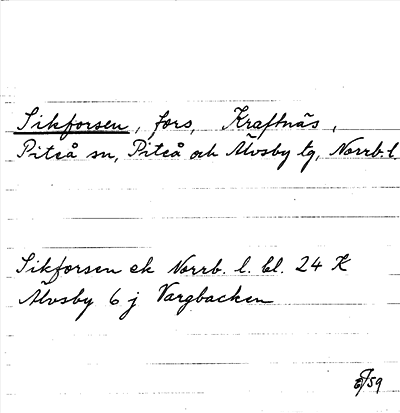 Sikforsen, fors, Kraftnäs,
Piteå sn, Piteå och Älvsby tg, Norrb. l.
Sikforsen ek Norrb. l. bl. 24 K
Älvsby 6 j Vargbacken
/59